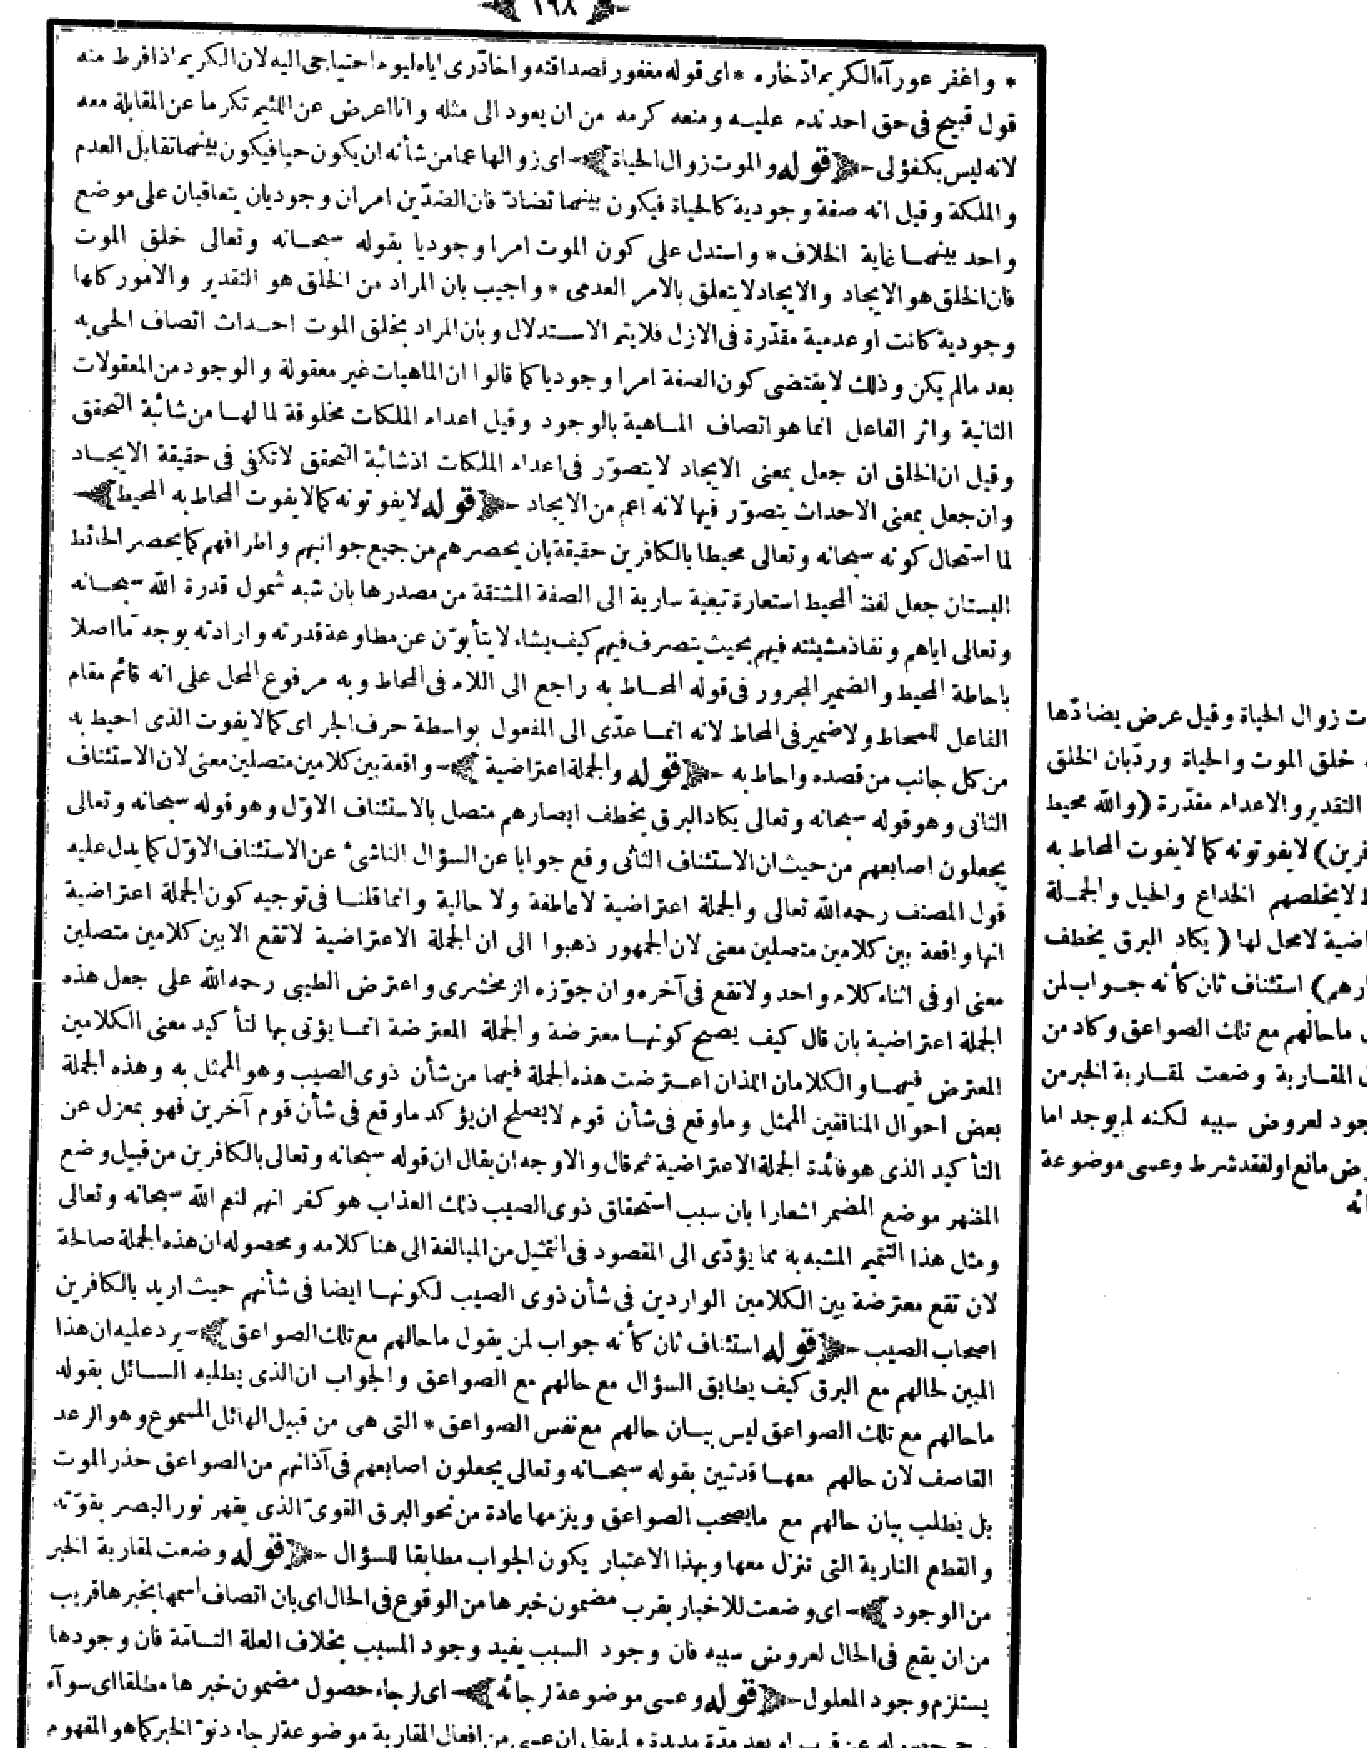 ١٩٨
* واغفر عوراء الكريم ادّخاره * اى قوله مغفور لصداقته واخادّرى اياه ليوم احتياجى اليه لان الكريم اذا فرط منه
قول قبيح فى حق احد ندم عليه ومنعه كرمه من ان يعود الى مثله وانا اعرض عن اللئيم تكرما عن المقابلة معه
لانه ليس بكفؤ لى ﴿ قوله والموت زوال الحياة ﴾ اى زوالها عما من شأنه ان يكون حيا فيكون بينهما تقابل العدم
والملكة وقيل انه صفة وجودية كالحياة فيكون بينهما تضادّ فان الضدّين امران وجوديان يتعاقبان على موضع
واحد بينهما غاية الخلاف * واستدل على كون الموت امرا وجوديا بقوله سبحانه وتعالى خلق الموت
فان الخلق هو الايجاد والايجاد لا يتعلق بالامر العدمى * واجيب بان المراد من الخلق هو التقدير والامور كلها
وجودية كانت او عدمية مقدّرة فى الازل فلا يتم الاستدلال وبان المراد بخلق الموت احداث اتصاف الحى به
بعد مالم يكن وذلك لا يقتضى كون الصفة امرا وجوديا كما قالوا ان الماهيات غير معقولة والوجود من المعقولات
الثانية واثر الفاعل انما هو اتصاف الماهية بالوجود وقيل اعدام الملكات مخلوقة لما لها من شائبة التحقق
وقيل ان الخلق ان جعل بمعنى الايجاد لا يتصوّر فى اعدام الملكات اذ شائبة التحقق لا تكفى فى حقيقة الايجاد
وان جعل بمعنى الاحداث يتصوّر فيها لانه اعم من الايجاد ﴿ قوله لا يفوتونه كما لا يفوت المحاط به المحيط ﴾
لما استحال كونه سبحانه وتعالى محيطا بالكافرين حقيقة بان يحصرهم من جميع جوانبهم واطرافهم كما يحصر الحائط
البستان جعل لفظ المحيط استعارة تبعية سارية الى الصفة المشتقة من مصدرها بان شبه شمول قدرة الله سبحانه
وتعالى اياهم ونفاذ مشيئته فيهم بحيث يتصرف فيهم كيف يشاء لا يتأبون عن مطاوعة قدرته وارادته بوجه مّا اصلا
باحاطة المحيط والضمير المجرور فى قوله المحاط به راجع الى اللام فى المحاط وبه مرفوع المحل على انه قائم مقام
الفاعل للمحاط ولا ضمير فى المحاط لانه انما عدّى الى المفعول بواسطة حرف الجر اى كما لا يفوت الذى احيط به
من كل جانب من قصده واحاط به ﴿ قوله والجملة اعتراضية ﴾ واقعة بين كلامين متصلين معنى لان الاستئناف
الثانى وهو قوله سبحانه وتعالى يكاد البرق يخطف ابصارهم متصل بالاستئناف الاوّل وهو قوله سبحانه وتعالى
يجعلون اصابعهم من حيث ان الاستئناف الثانى وقع جوابا عن السؤال الناشئ عن الاستئناف الاوّل كما يدل عليه
قول المصنف رحمه الله تعالى والجملة اعتراضية لا عاطفة ولا حالية وانما قلنا فى توجيه كون الجملة اعتراضية
انها واقعة بين كلامين متصلين معنى لان الجمهور ذهبوا الى ان الجملة الاعتراضية لا تقع الا بين كلامين متصلين
معنى او فى اثناء كلام واحد ولا تقع فى آخره وان جوّزه الزمخشرى واعترض الطيبى رحمه الله على جعل هذه
الجملة اعتراضية بان قال كيف يصح كونها معترضة والجملة المعترضة انما يؤتى بها لتأكيد معنى الكلامين
المعترض فيهما والكلامان اللذان اعترضت هذه الجملة فيهما من شأن ذوى الصيب وهو الممثل به وهذه الجملة
بعض احوال المنافقين الممثل وما وقع فى شأن قوم لا يصلح ان يؤكد ما وقع فى شأن قوم آخرين فهو بمعزل عن
التأكيد الذى هو فائدة الجملة الاعتراضية ثم قال والاوجه ان يقال ان قوله سبحانه وتعالى بالكافرين من قبيل وضع
المظهر موضع المضمر اشعارا بان سبب استحقاق ذوى الصيب ذلك العذاب هو كفرانهم لنعم الله سبحانه وتعالى
ومثل هذا التتميم المشبه به مما يؤدّى الى المقصود فى التمثيل من المبالغة الى هنا كلامه ومحصوله ان هذه الجملة صالحة
لان تقع معترضة بين الكلامين الواردين فى شأن ذوى الصيب لكونها ايضا فى شأنهم حيث اريد بالكافرين
اصحاب الصيب ﴿ قوله استئناف ثان كأنه جواب لمن يقول ما حالهم مع تلك الصواعق ﴾ يرد عليه ان هذا
المبين لحالهم مع البرق كيف يطابق السؤال مع حالهم مع الصواعق والجواب ان الذى يطلبه السائل بقوله
ما حالهم مع تلك الصواعق ليس بيان حالهم مع نفس الصواعق * التى هى من قبيل الهائل المسموع وهو الرعد
القاصف لان حالهم معها قد تبين بقوله سبحانه وتعالى يجعلون اصابعهم فى آذانهم من الصواعق حذر الموت
بل يطلب بيان حالهم مع ما يصحب الصواعق ويلزمها عادة من نحو البرق القوىّ الذى يقهر نور البصر بقوّته
والقطع النارية التى تنزل معها وبهذا الاعتبار يكون الجواب مطابقا للسؤال ﴿ قوله وضعت لمقاربة الخبر
من الوجود ﴾ اى وضعت للاخبار بقرب مضمون خبرها من الوقوع فى الحال اى بان اتصاف اسمها بخبرها قريب
من ان يقع فى الحال لعروض سببه فان وجود السبب يفيد وجود المسبب بخلاف العلة التامّة فان وجودها
يستلزم وجود المعلول ﴿ قوله وعسى موضوعة لرجائه ﴾ اى لرجاء حصول مضمون خبرها مطلقا اى سوآء
حصوله عن قرب او بعد مدّة مديدة ولم يقل ان عسى من افعال المقاربة موضوعة لرجاء دنوّ الخبر كما هو المفهوم
ت زوال الحياة وقيل عرض يضادّها
خلق الموت والحياة وردّ بان الخلق
التقدير والاعدام مقدّرة (والله محيط
فرين) لا يفوتونه كما لا يفوت المحاط به
لا يخلصهم الخداع والحيل والجملة
اضية لا محل لها (يكاد البرق يخطف
ارهم) استئناف ثان كأنه جواب لمن
ما حالهم مع تلك الصواعق وكاد من
المقاربة وضعت لمقاربة الخبر من
جود لعروض سببه لكنه لم يوجد اما
رض مانع او لفقد شرط وعسى موضوعة
ئه